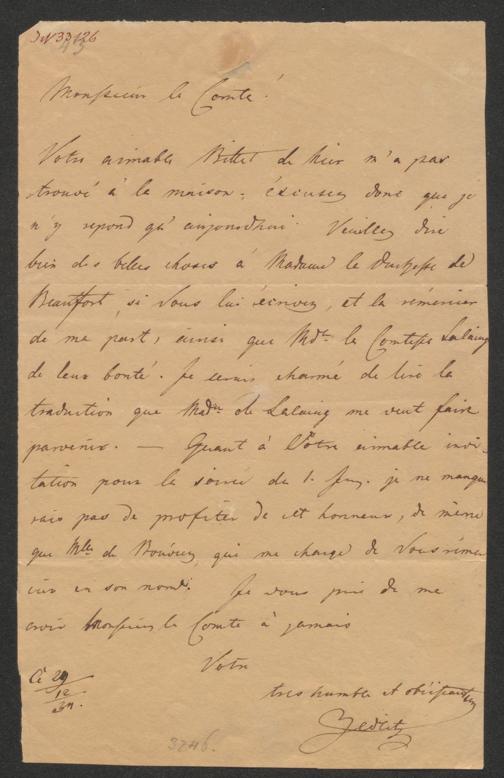 JN 33126
43
Monsieur le Comte!
Votre aimable Billet de hier m'a pas
trouvé à la maison; éxcusez donc que je
n'y repond qu'aujourdhui. Veuillez dire
bien des belles choses à Madame la Duchesse de
Beaufort, si Vous lui écrivez, et la rémercier
de ma part, ainsi que Mde la Comtesse Lalaing
de leur bonté. Je serais charmé de lire la
traduction que Mde de Lalaing me veut faire
parvenir. — Quant à Votre aimable invi-
tation pour la soirée du 1. Jan. je ne manque
rais pas de profiter de cet honneur, de même
que Mlle de qui me charge de Vous rémer
cier en son nom. Je vous prie de me
croir Monsieur le Comte à jamais
Votre
Ce 29
12
tres humble et obéissant
Zedlitz
3246.